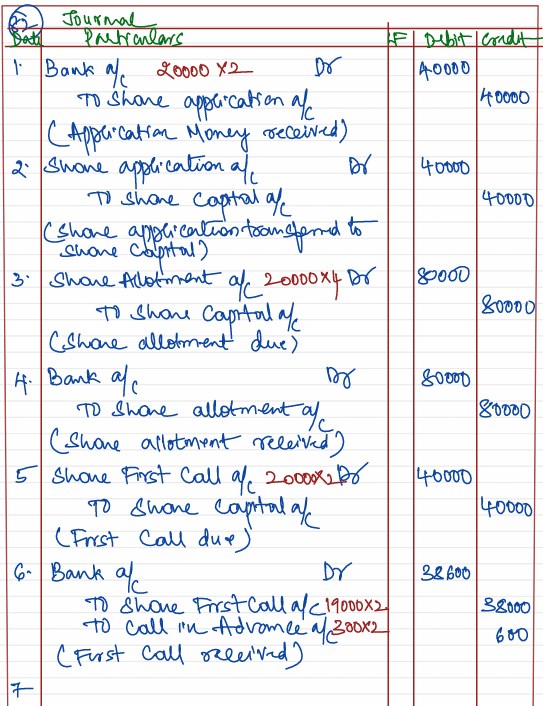 27 Journal
Date Particulars LF Debit Credit
1. Bank a/c 20000 X2 Dr 40000
To Share application a/c 40000
(Application Money received)
2. Share application a/c Dr 40000
To share capital a/c 40000
(Share application transferred to
share capital)
3. Share Allotment a/c 20000X4 Dr 80000
To Share Capital a/c 80000
(Share allotment due)
4. Bank a/c Dr 80000
To Share allotment a/c 80000
(Share allotment received)
5 Share First Call a/c 20000X2 Dr 40000
To Share Capital a/c 40000
(First Call due)
6. Bank a/c Dr 38600
To Share First Call a/c 19000X2 38000
To Call in Advance a/c 300X2 600
(First Call received)
7